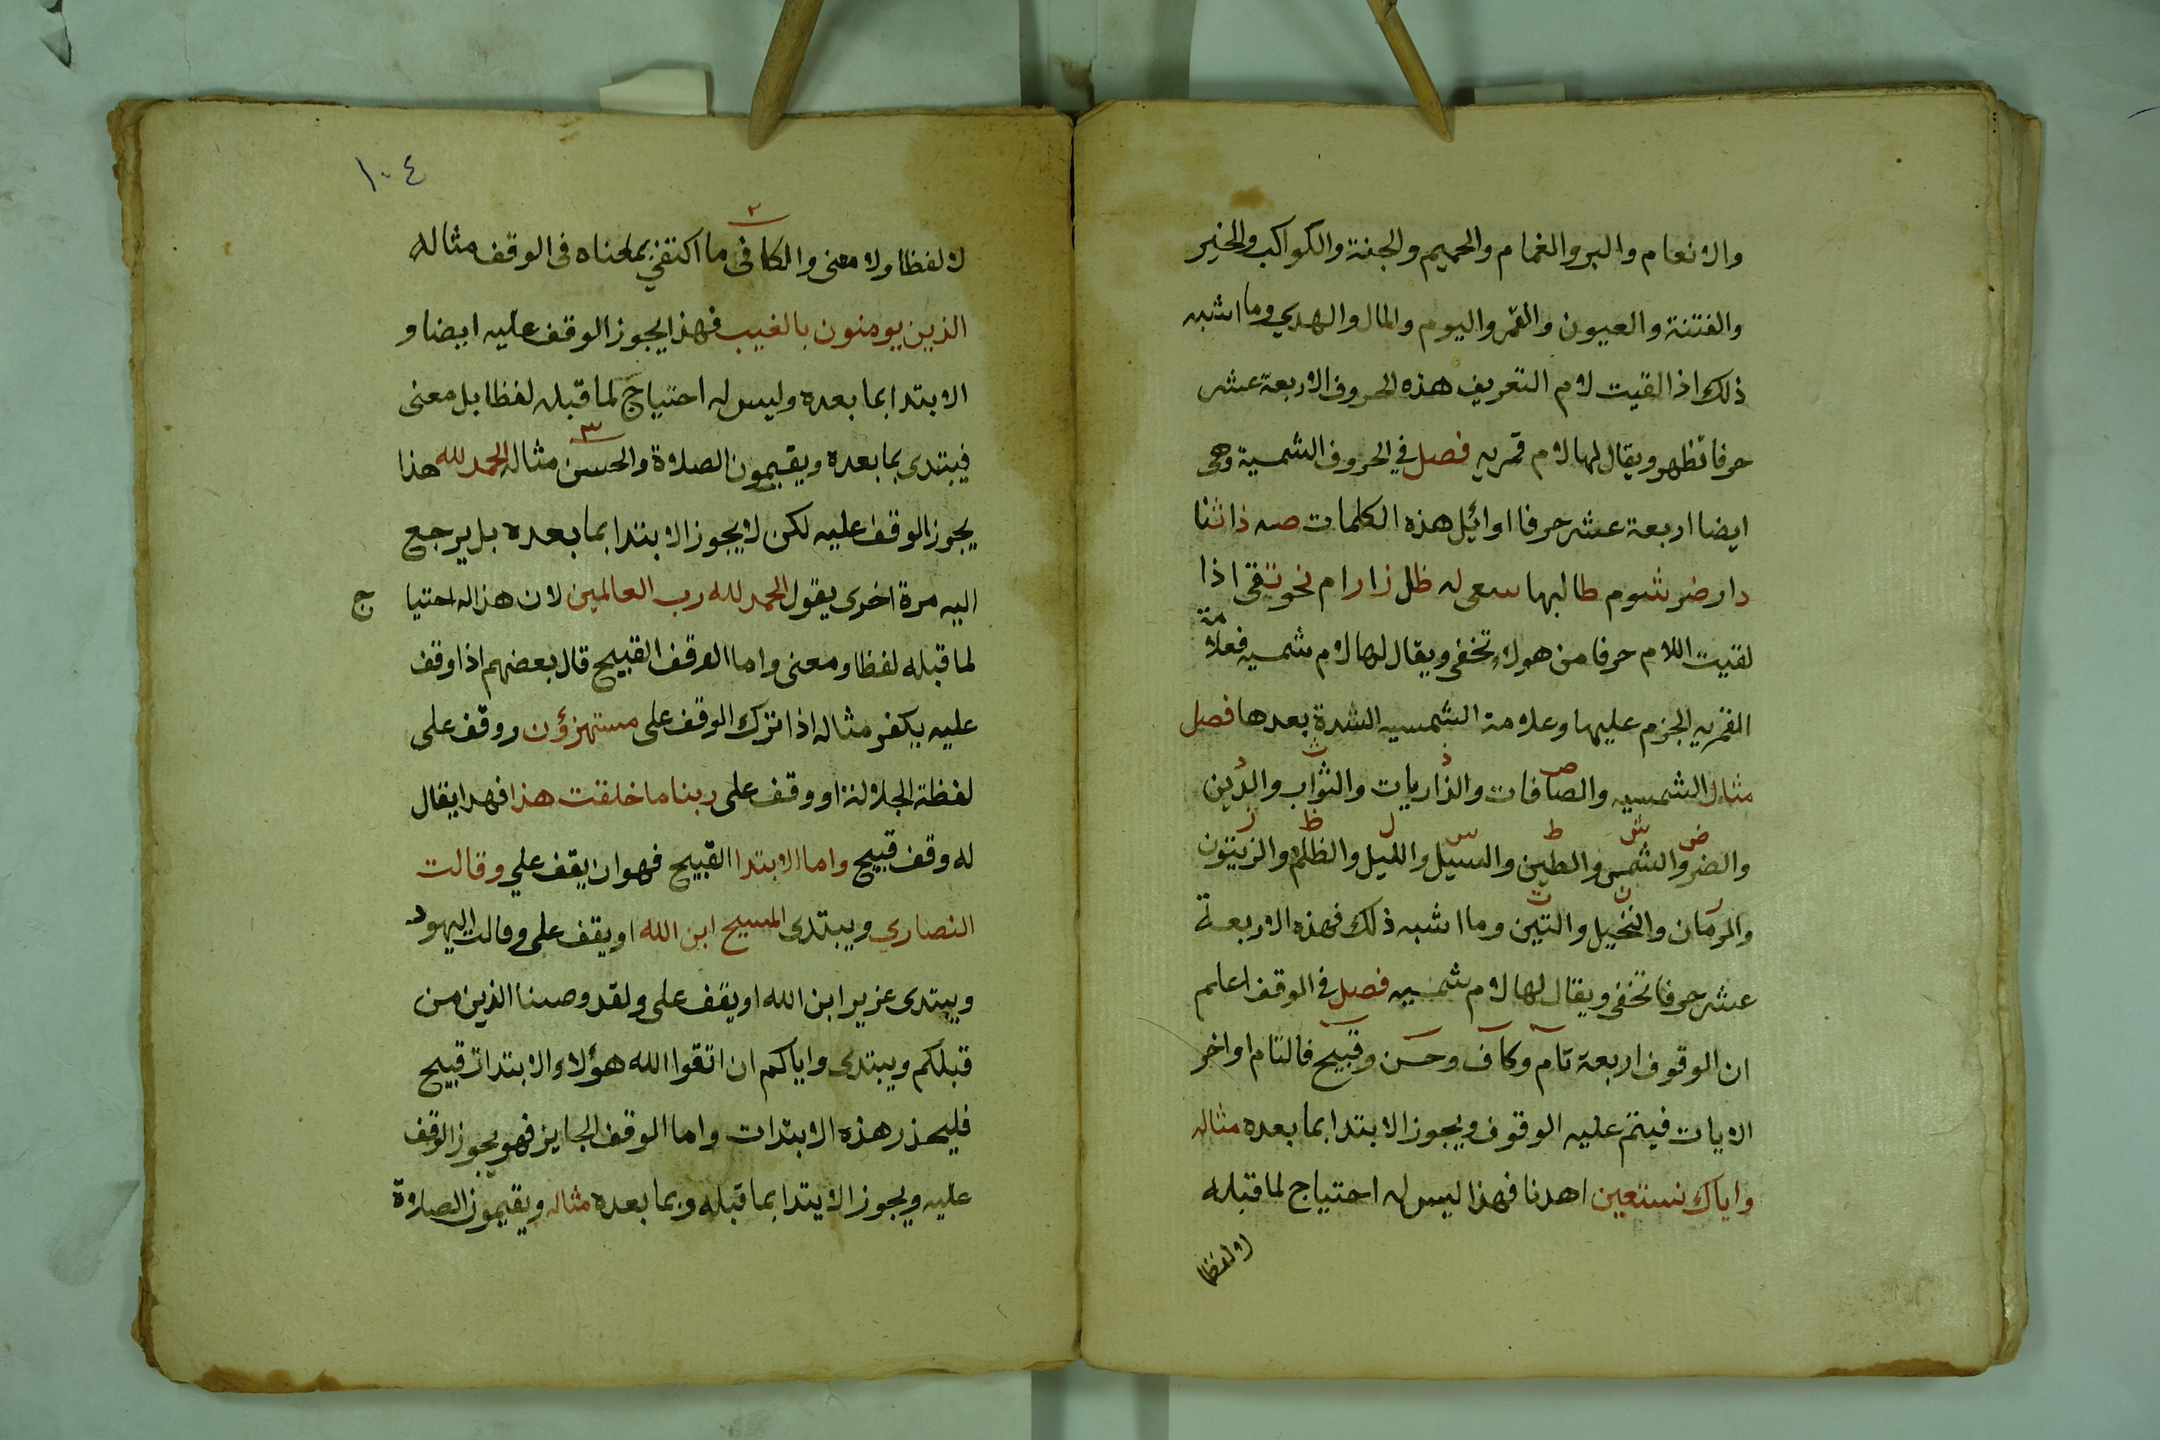 والانعام والبر والغمام والحميم والجنة والكواكب والخير
والفتنة والعيون والقمر واليوم والمال والهدي وما اشبه
ذلك اذا لقيت لام التعريف هذه الحروف الاربعة عشر
حرفا تظهر ويقال لها لام قمريه فصل في الحروف الشمسية وهي
ايضا اربعة عشر حرفا اوائل هذه الكلمات صه ذا ثنا
دار ضر شوم طالبها سعى له ظل زار ام نحو تقى اذا
لقيت اللام حرفا من هولاء تخفى ويقال لها لام شمسيه فعلامة
القمريه الجزم عليها وعلامة الشمسيه الشدة بعدها فصل
مثال الشمسيه والصافات والذاريات والثواب والدين
والضر والشمس والطين والسيل والليل والظلم والزيتون
والرمان والنخيل والتين وما اشبه ذلك فهذه الاربعة
عشر حرفا تخفى ويقال لها لام شمسيه فصل في الوقف اعلم
ان الوقوف اربعة تام وكاف وحسن وقبيح فالتام اواخر
الايات فيتم عليه الوقوف ويجوز الابتدا بما بعده مثاله
واياك نستعين اهدنا فهذا ليس له احتياج لما قبله
لا لفظا
١٠٤
لا لفظا ولا معنى والكافى ما اكتفي بمعناه فى الوقف مثاله
الذين يومنون بالغيب فهذا يجوز الوقف عليه ايضا و
الابتدا بما بعده وليس له احتياج لما قبله لفظا بل معنى
فيبتدى بما بعده ويقيمون الصلاة والحسن مثاله الحمد لله هذا
يجوز الوقف عليه لكن لا يجوز الابتدا بما بعده بل يرجع
اليه مرة اخرى يقول الحمد لله رب العالمين لان هذا له احتيا ج
لما قبله لفظا ومعنى واما الوقف القبيح قال بعضهم اذا وقف
عليه يكفر مثاله اذا ترك الوقف على مستهزؤن ووقف على
لفظة الجلالة او وقف على ربنا ما خلقت هذا فهدا يقال
له وقف قبيح واما الابتدا القبيح فهو ان يقف علي وقالت
النصاري ويبتدى المسيح ابن الله او يقف على وقالت اليهود
ويبتدى عزير ابن الله او يقف على ولقد وصينا الذين من
قبلكم ويبتدى واياكم ان اتقوا الله هؤلاء الابتدات قبيح
فليحذر هذه الابتدات واما الوقف الجايز فهو يجوز الوقف
عليه ويجوز الابتدا بما قبله وبما بعده مثاله ويقيمون الصلاة